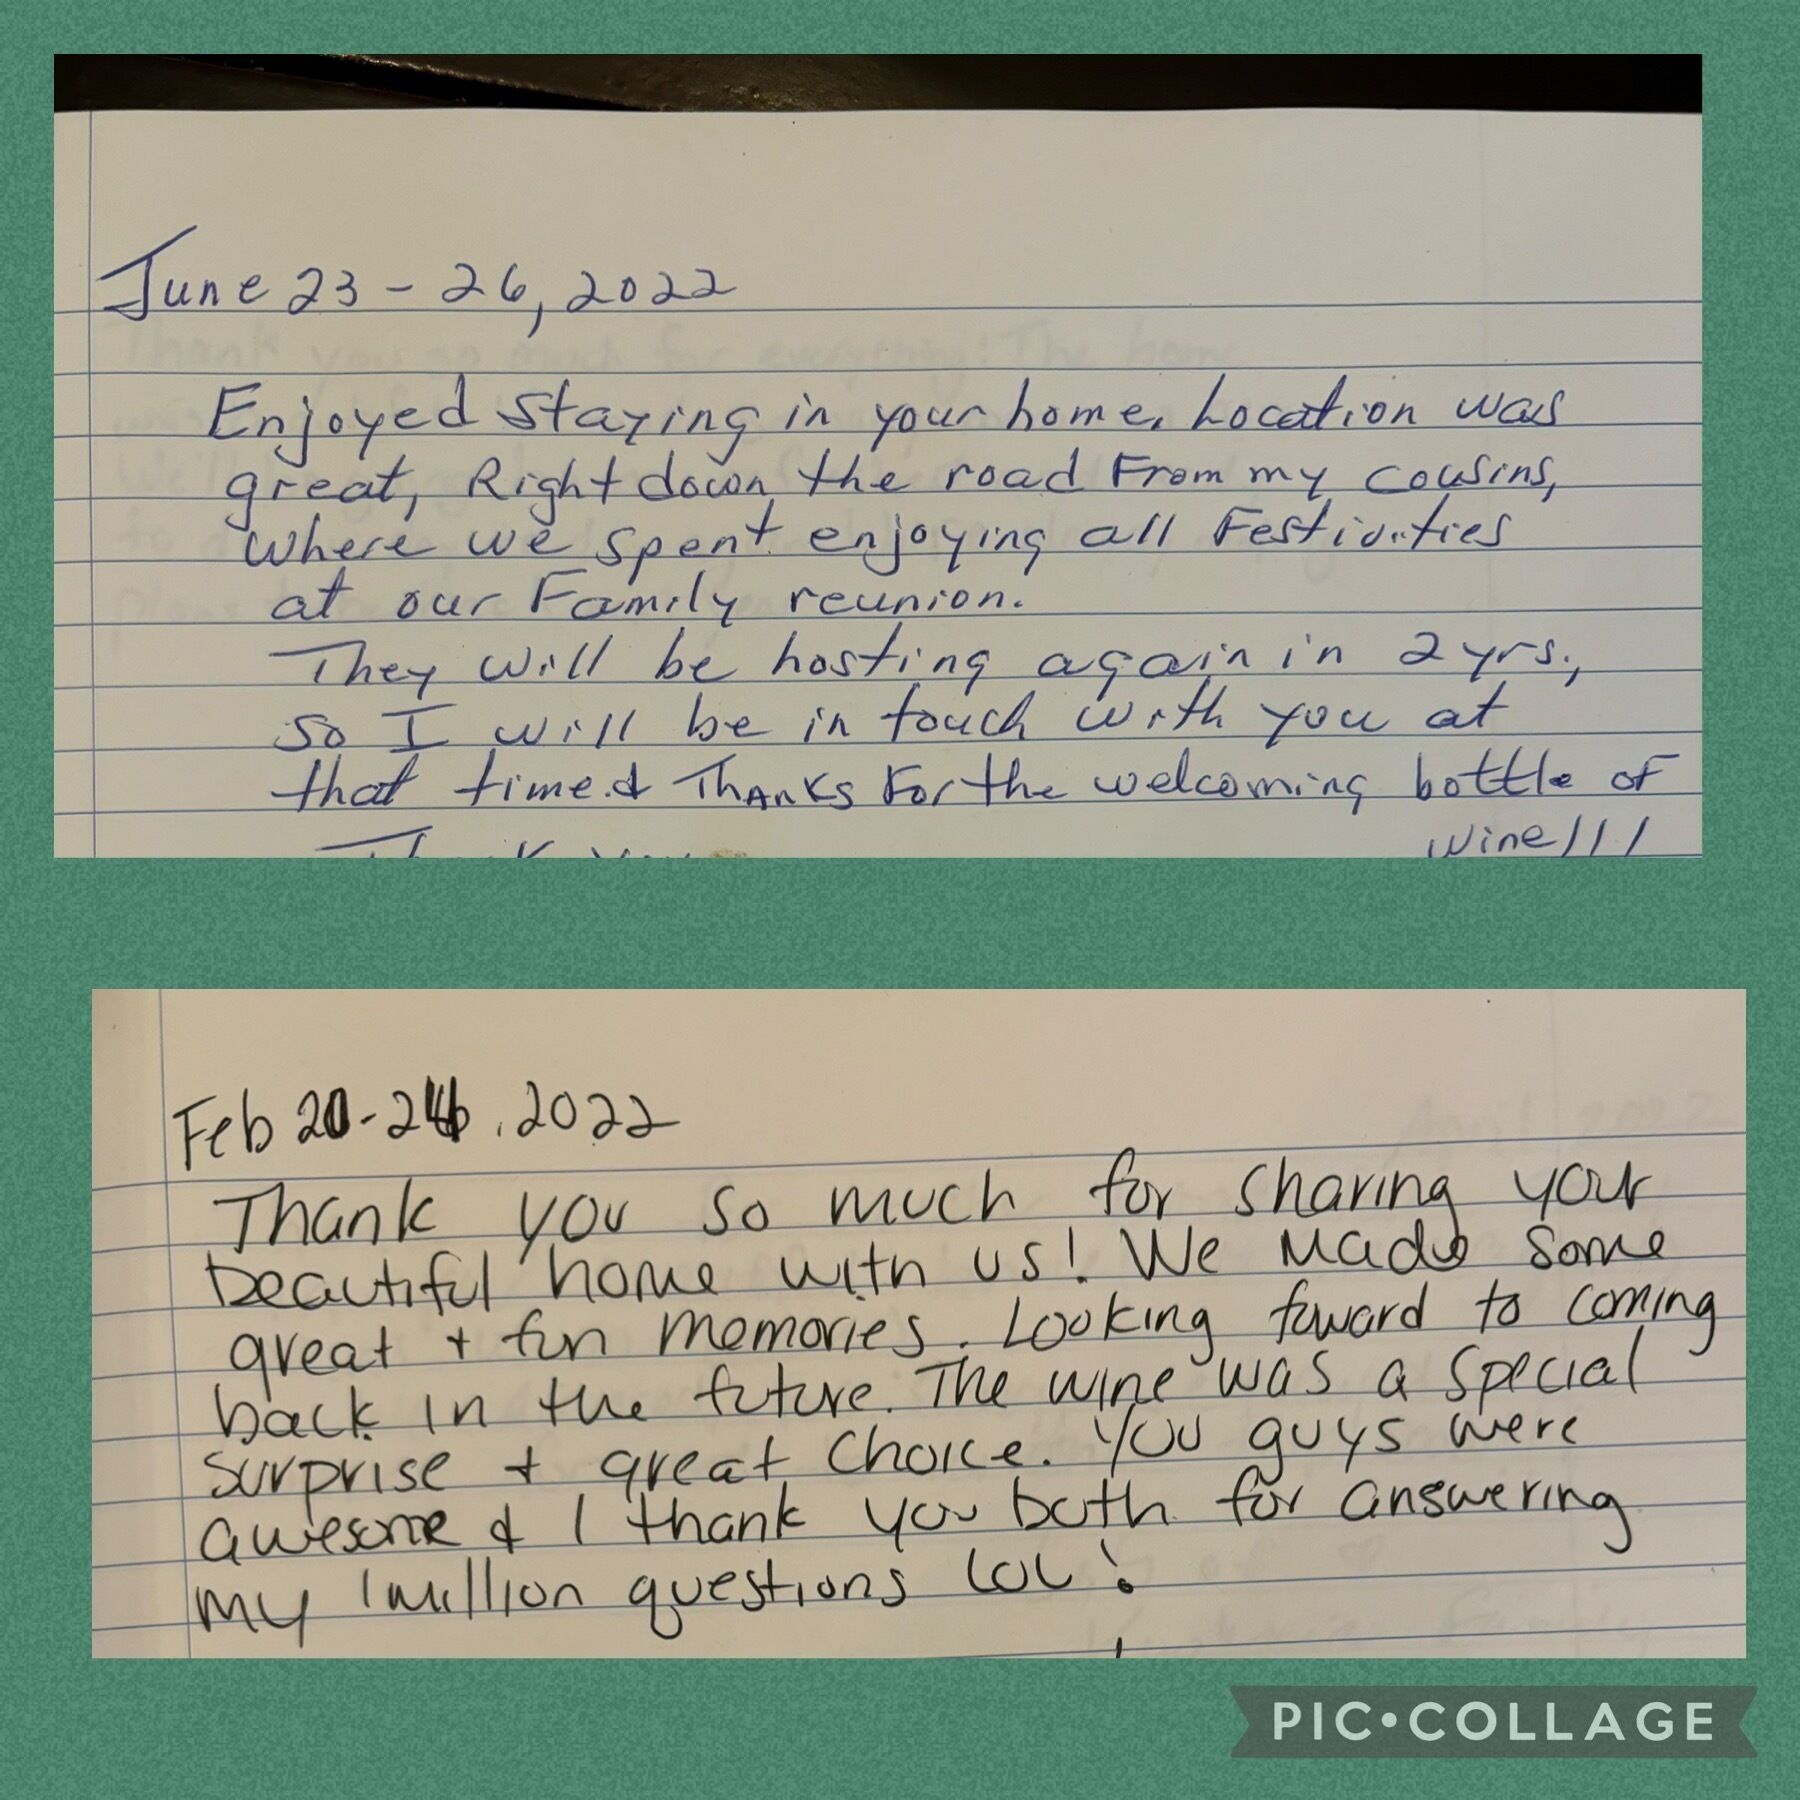 June 23 - 26, 2022
Enjoyed staying in your home. Location was
great, Right down the road From my cousins,
where we spent enjoying all Festivities
at our Family reunion.
They will be hosting again in 2 yrs.,
so I will be in touch with you at
that time. & Thanks For the welcoming bottle of
wine!!!
Thank you
Feb 20-26, 2022
Thank you so much for sharing your
beautiful home with us! We made some
great + fun memories. Looking foward to coming
back in the future. The wine was a special
surprise + great choice. You guys were
awesome & I thank you both for answering
my 1 million questions LOL!
PIC•COLLAGE